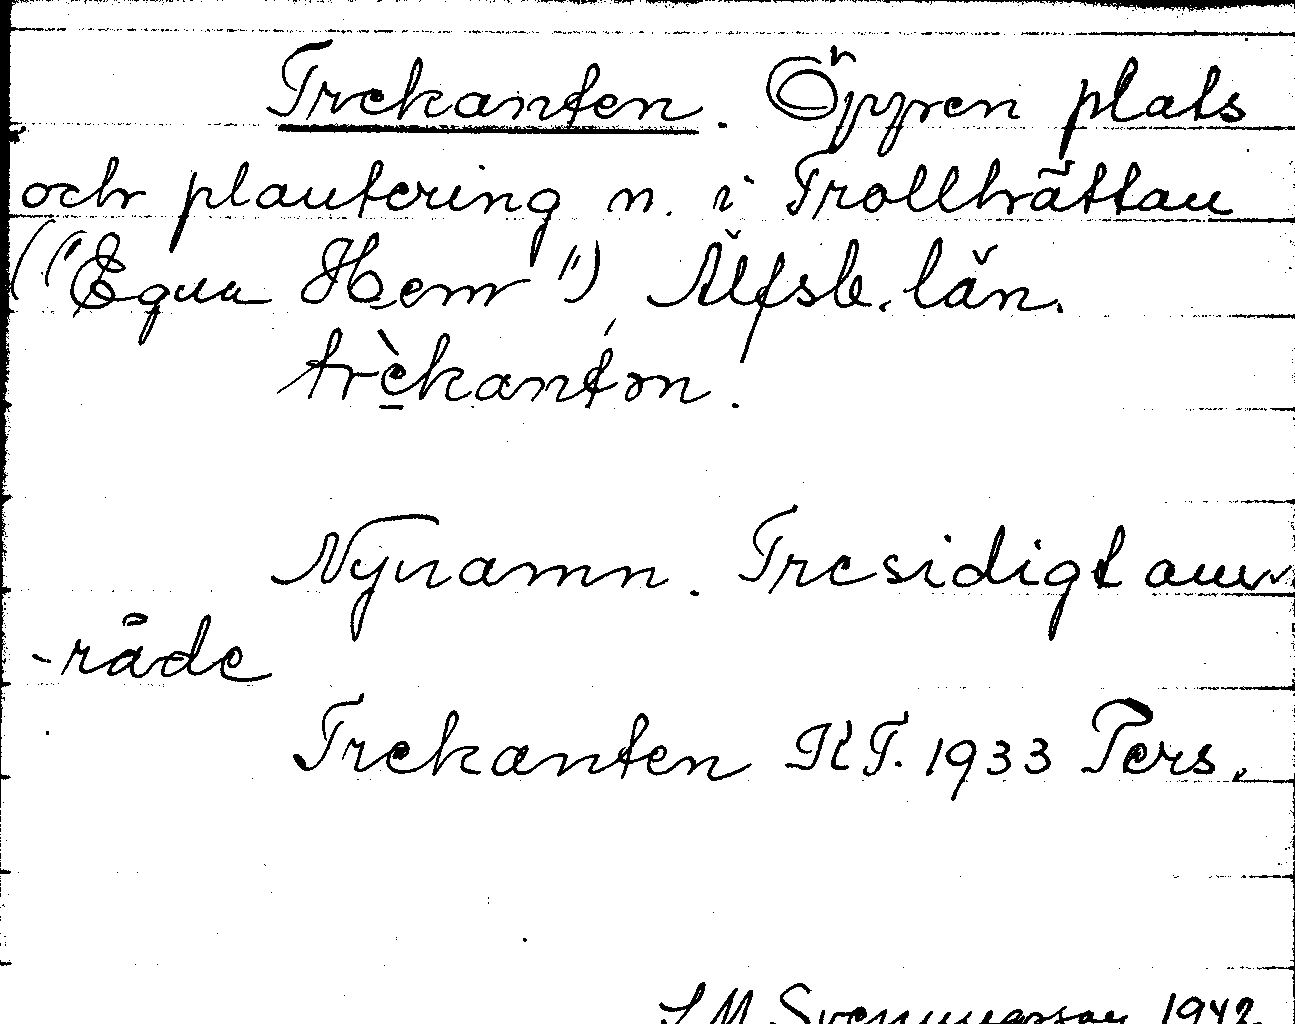 Trekanten. Öppen plats
och plantering n. i Trollhättan
("Egna Hem") Älfsb. län.
trèkantən.
Nynamn. Tresidigt om-
-råde
Trekanten KF. 1933 Pers.
S M Svennungson 1942